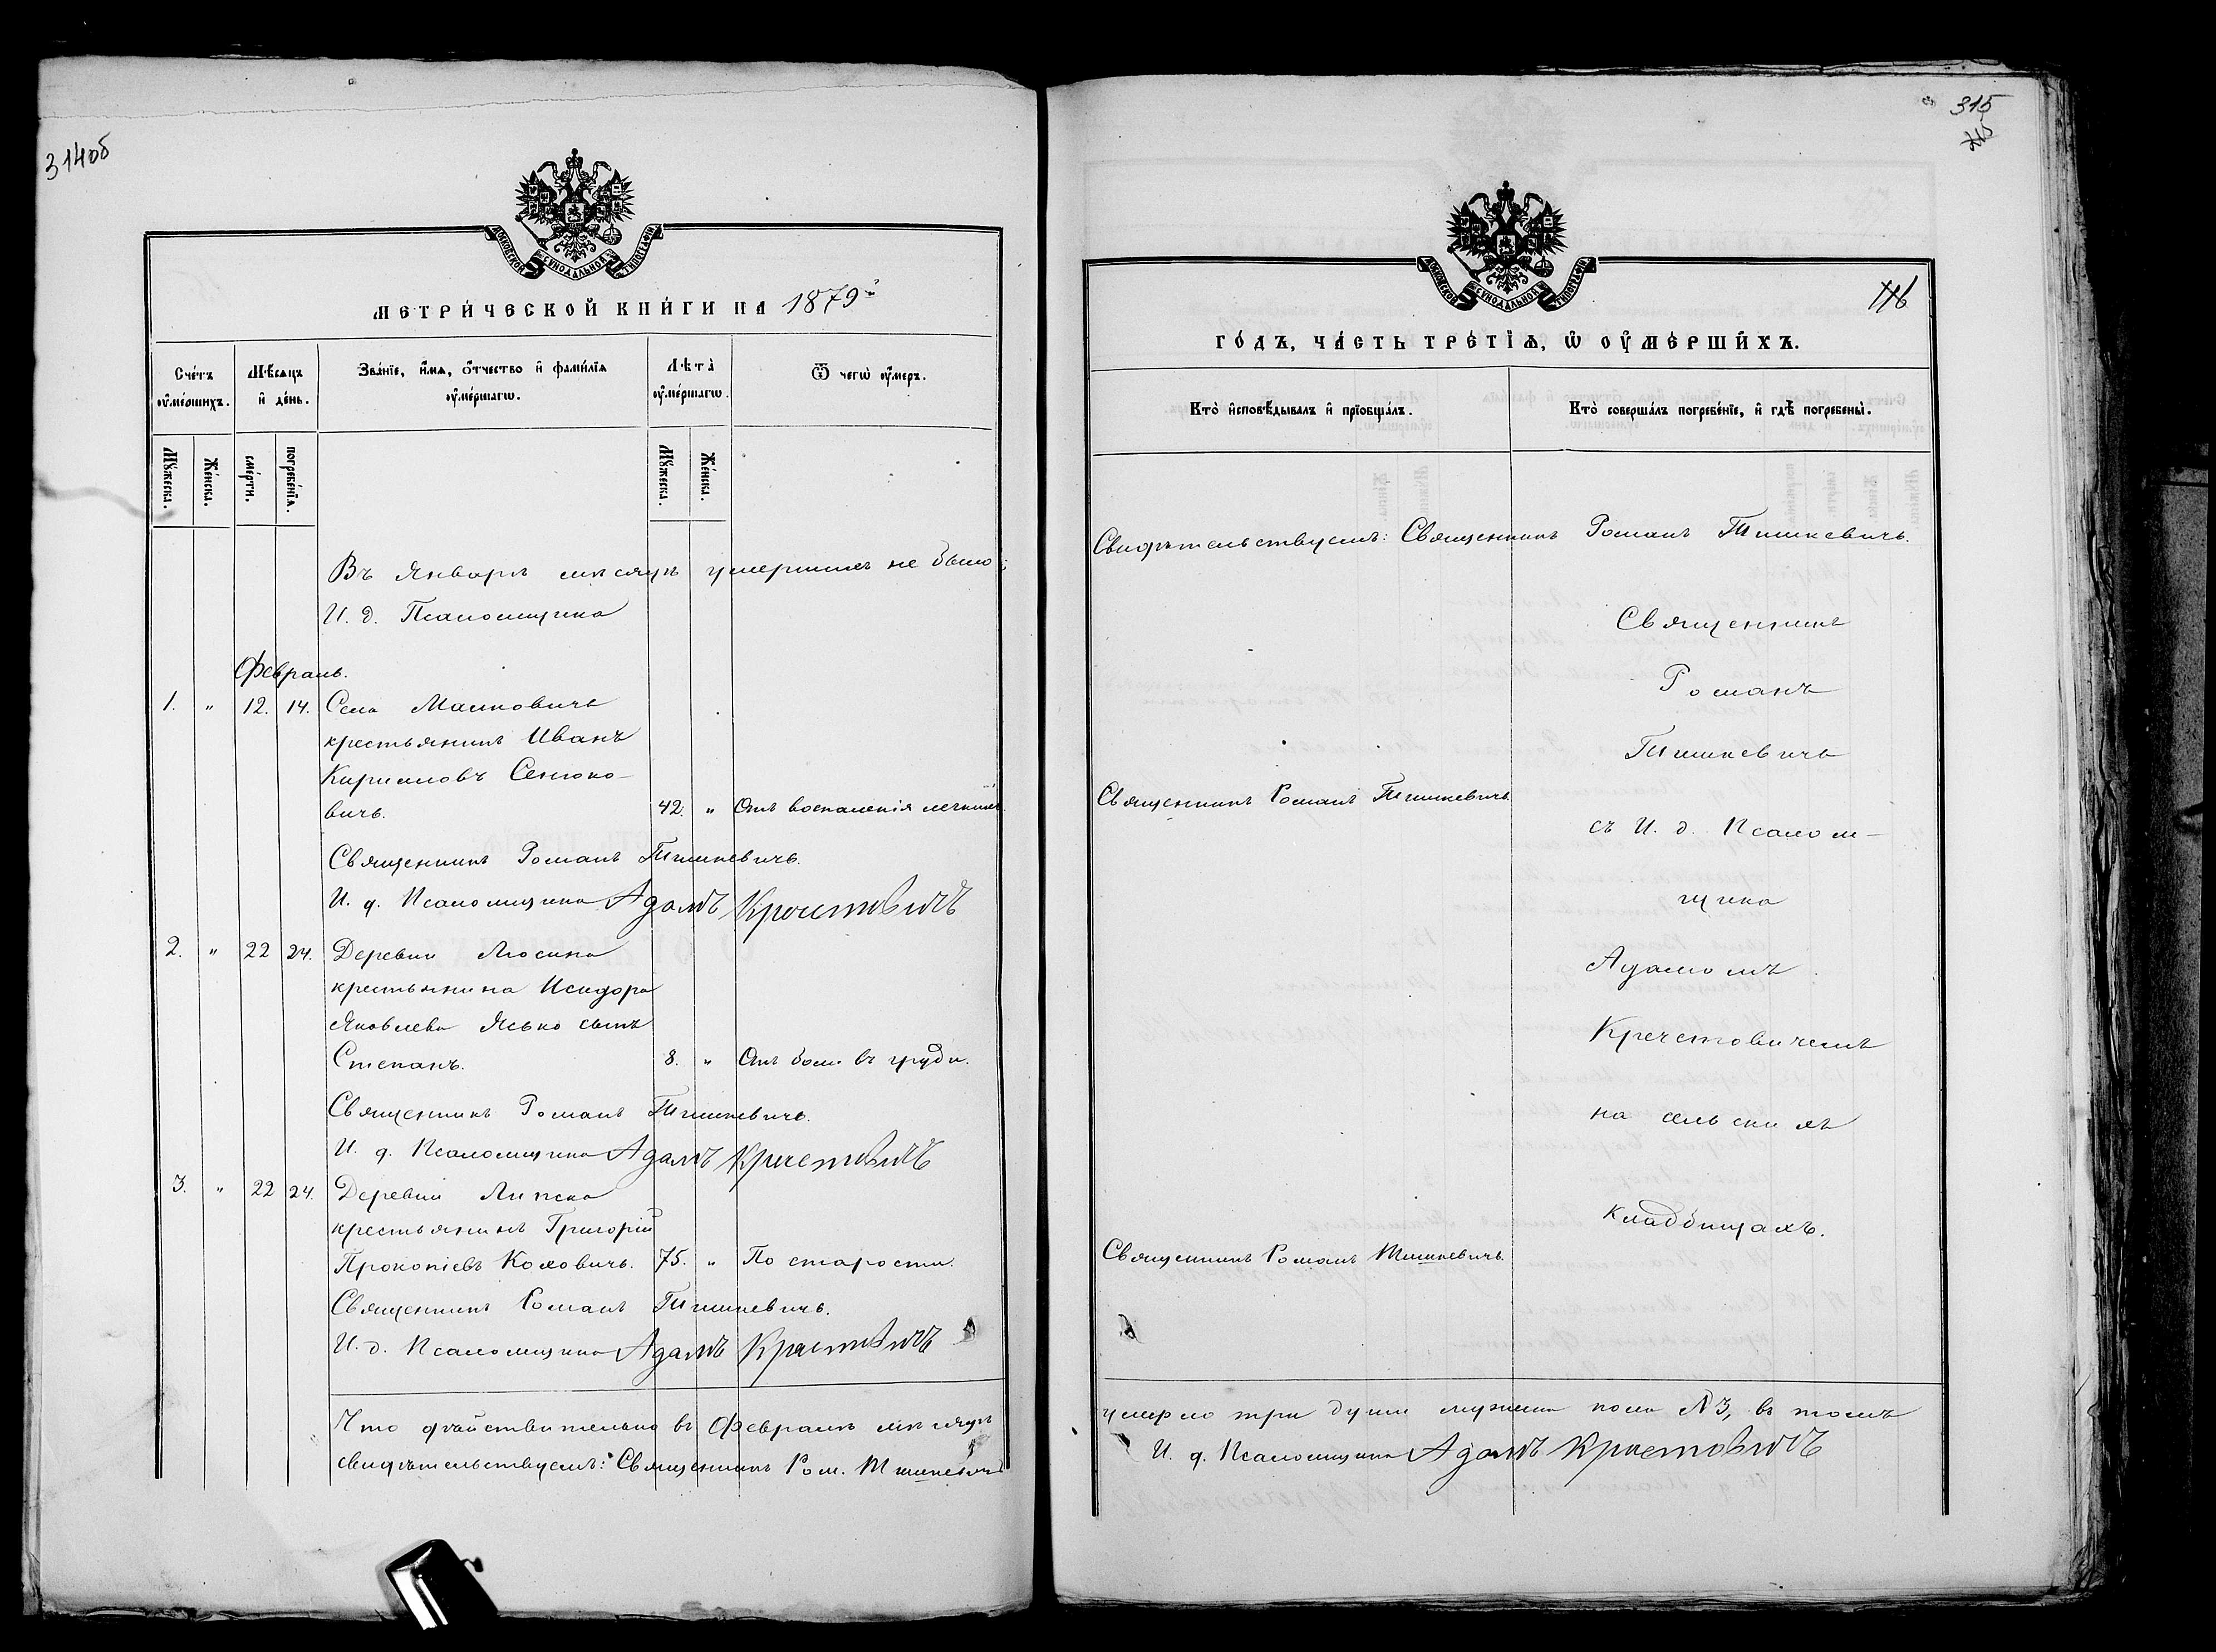 314об
МОСКОВСКОЙ СѴНОДАЛЬНОЙ ТИПОГРАФІИ
МЕТРИ́ЧЕСКОЙ КНИ́ГИ НА 1879й
Сче́тъ ᲂу҆ме́ршихъ.
Мѣ́сяцъ и҆ де́нь.
Зва́нїе, и҆́мѧ, ѻ҆́тчество и҆ фами́лїѧ ᲂу҆ме́ршагѡ.
Лѣ́та ᲂу҆ме́ршагѡ.
Ѿ чегѡ̀ ᲂу҆́меръ.
Мꙋ́жеска.
Же́нска.
сме́рти.
погребе́нїѧ.
Мꙋ́жеска.
Же́нска.
Въ Январѣ мѣсяцѣ умершихъ не было;
И. д. Псаломщика
Февраль.
1. " 12. 14. Села
крестьянинъ Иванъ
Кирилловъ Сенюко-
вичъ. 42. " Отъ воспаленія легкихъ.
Священникъ Романъ Тишкевичъ.
И. д. Псаломщика Адамъ Кречетовичъ
2. " 22 24. Деревни Люсина
крестьянина Исидора
Яковлева Ясько сынъ
Степанъ. 8. " Отъ боли въ груди.
Священникъ Романъ Тишкевичъ.
И. д. Псаломщика Адамъ Кречетовичъ
3. " 22 24. Деревни Липска
крестьянинъ Григорій
Прокопіевъ Коховичъ. 75. " По старости.
Священникъ Романъ Тишкевичъ.
И. д. Псаломщика Адамъ Кречетовичъ
Что дѣйствительно въ Февралѣ мѣсяцѣ
свидѣтельствуемъ: Священникъ Ром. Тишкевичъ
315
МОСКОВСКОЙ СѴНОДАЛЬНОЙ ТИПОГРАФІИ
116
ГО́ДЪ, ЧА́СТЬ ТРЕ́ТЇѦ, Ѡ҆ ОУ҆МЕ́РШИХЪ.
Кто̀ и҆сповѣ́дывалъ и҆ прїѡбща́лъ.
Кто̀ соверша́лъ погребе́нїе, и҆ гдѣ̀ погребены̀.
Свидѣтельствуемъ: Священникъ Романъ Тишкевичъ.
Священникъ
Романъ
Тишкевичъ
Священникъ Романъ Тишкевичъ.
съ И. д. Псалом-
щика
Адамомъ
Кречетовичемъ
на сельскихъ
кладбищахъ.
Священникъ Романъ Тишкевичъ.
умерло три души мужеска пола №3, въ томъ
И. д. Псаломщика Адамъ Кречетовичъ